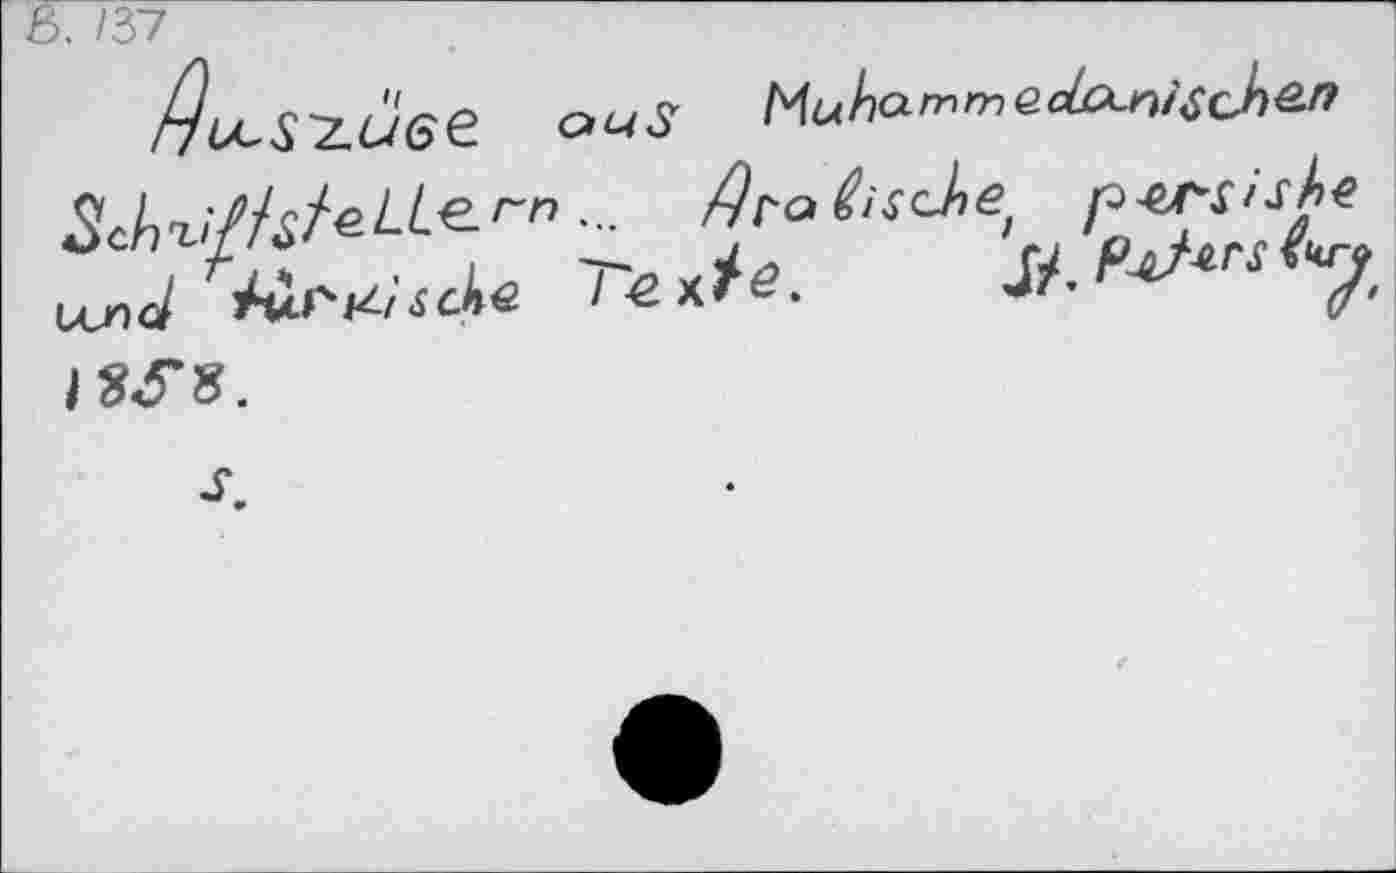 B. 137
Auszüge aus Muhammedanischen
Schriftstellern... Arabische, persishe
und türkische Texte. St. Petersburg,
1858.
S.